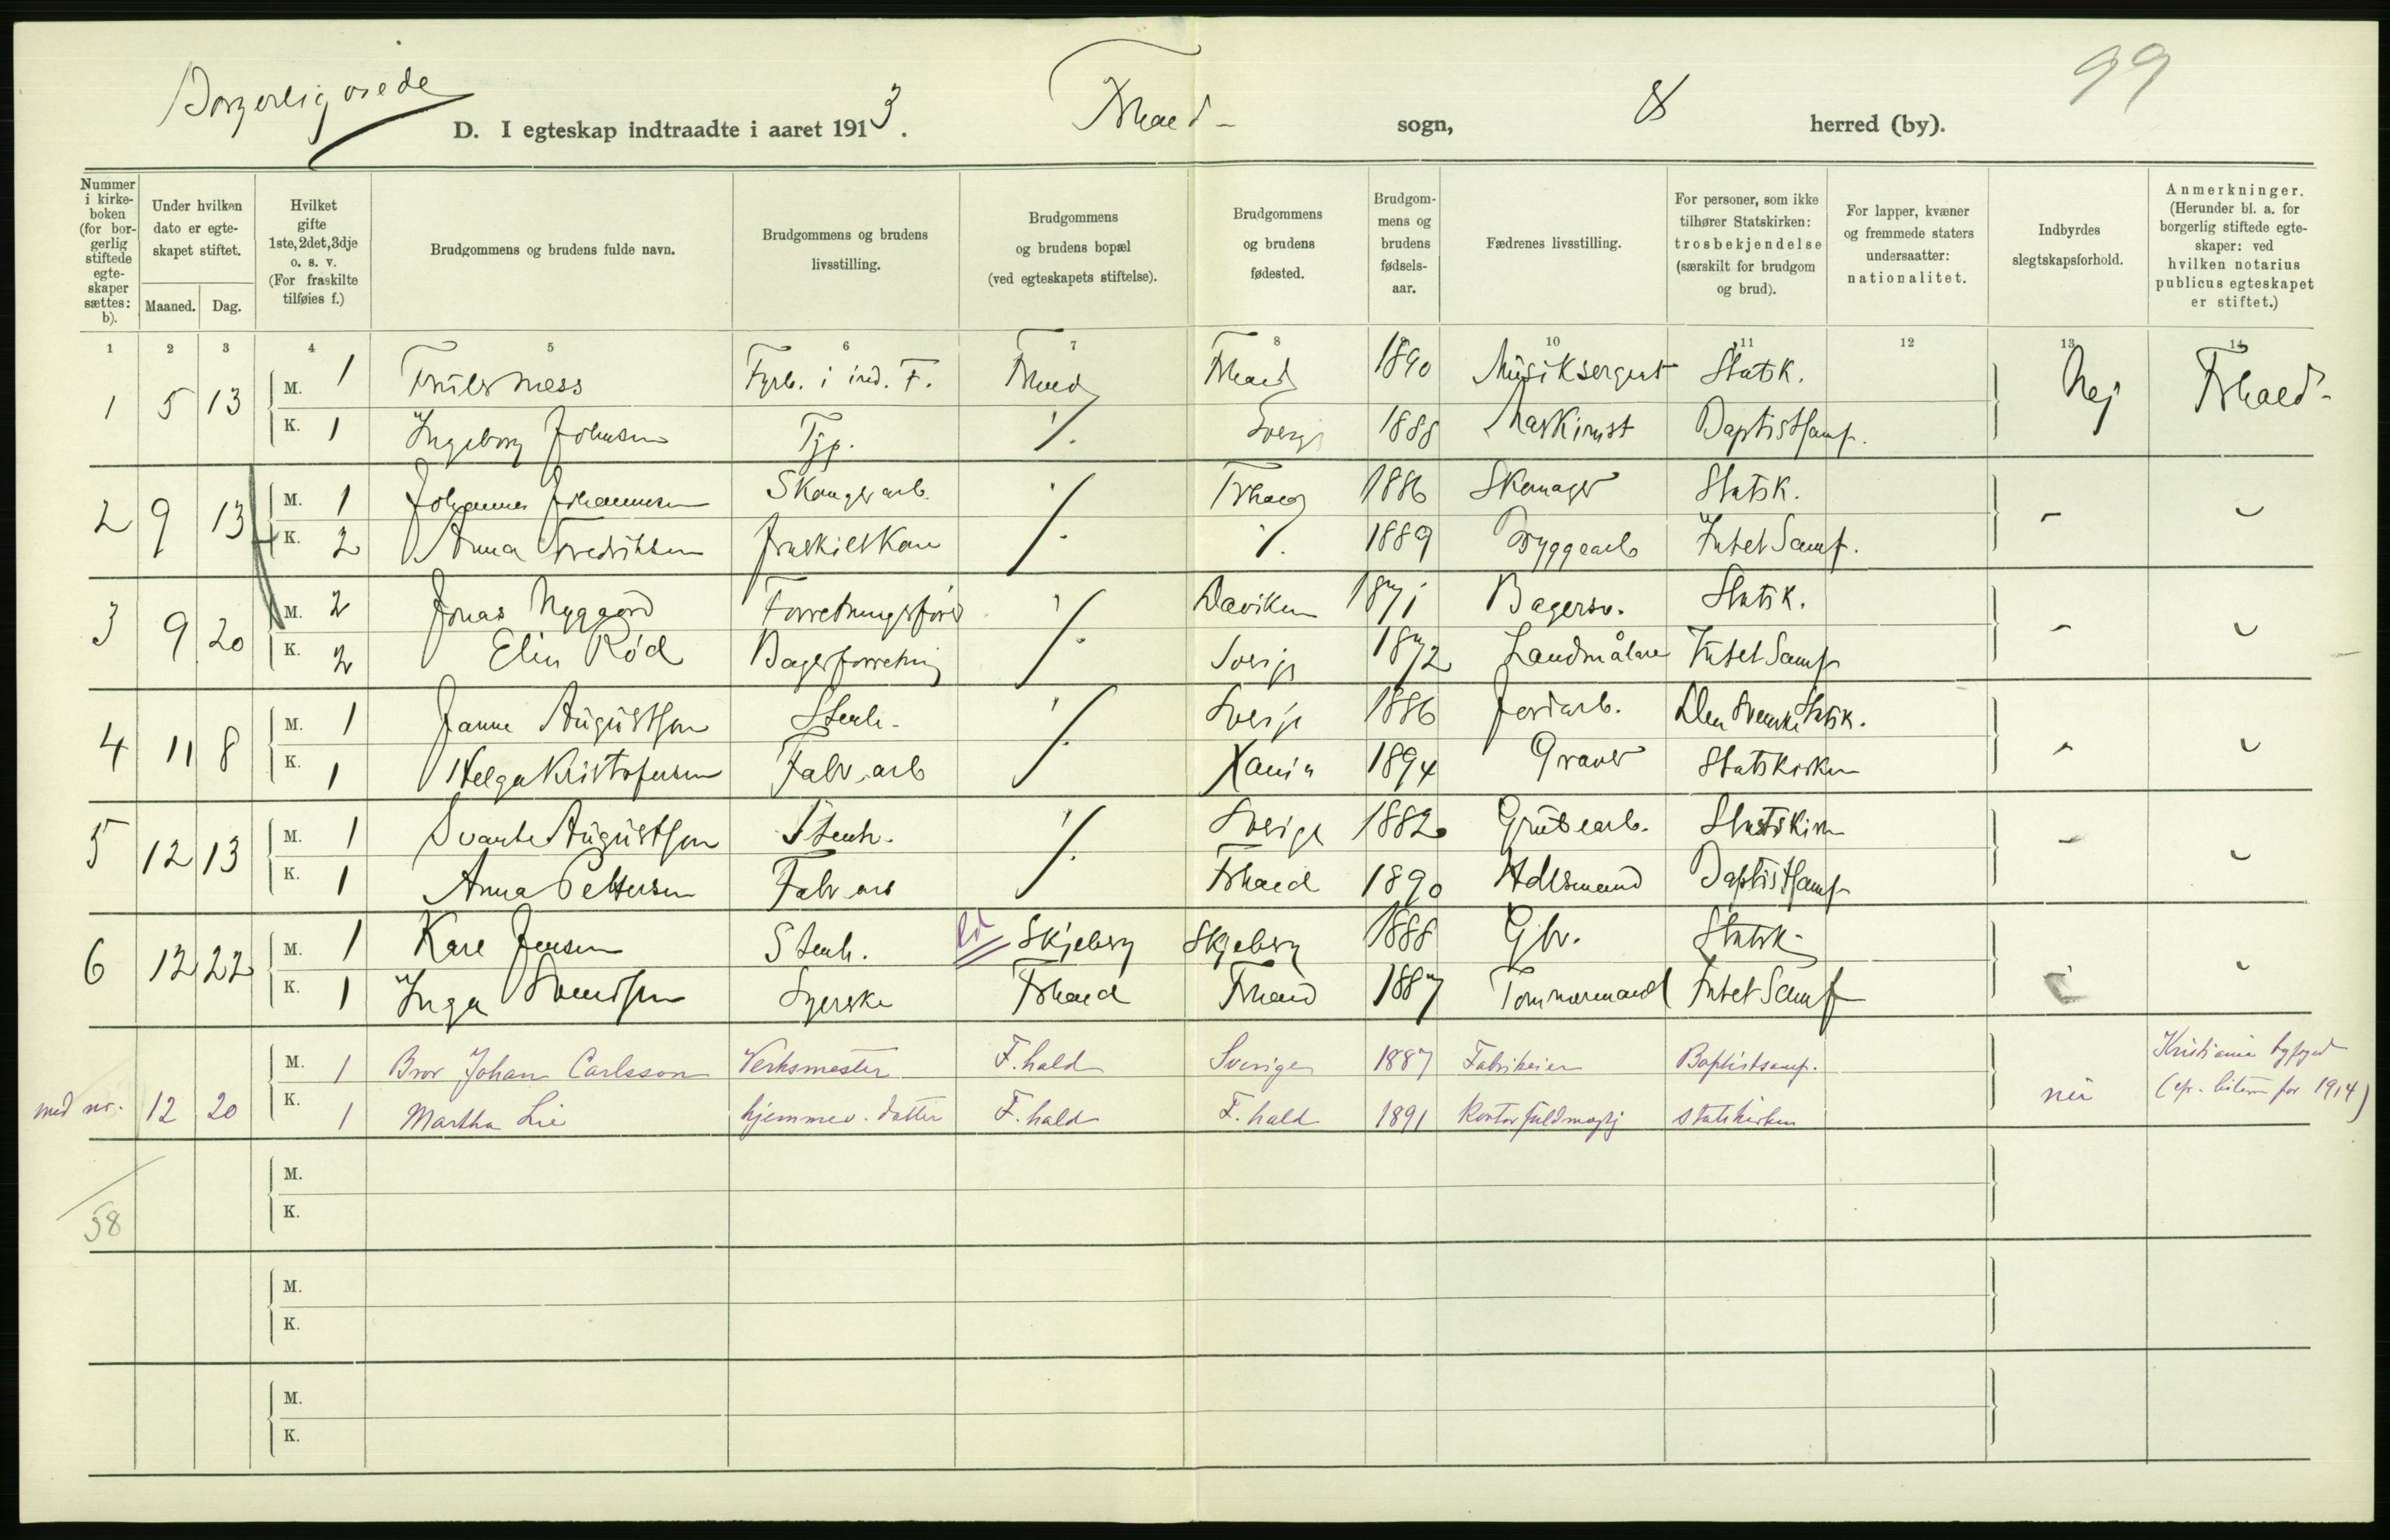 99
Borgerlig viede
D. I egteskap indtraadte i aaret 1913. Fhald sogn, herred (by).
Nummer i kirkeboken (for borgerlig stiftede egteskaper sættes: b).
Under hvilken dato er egteskapet stiftet.
Maaned. Dag.
Hvilket gifte 1ste, 2det, 3dje o. s. v. (For fraskilte tilføies f.)
Brudgommens og brudens fulde navn.
Brudgommens og brudens livsstilling.
Brudgommens og brudens bopæl (ved egteskapets stiftelse).
Brudgommens og brudens fødested.
Brudgommens og brudens fødselsaar.
Fædrenes livsstilling.
For personer, som ikke tilhører Statskirken: trosbekjendelse (særskilt for brudgom og brud).
For lapper, kvæner og fremmede staters undersaatter: nationalitet.
Indbyrdes slegtskapsforhold.
Anmerkninger. (Herunder bl. a. for borgerlig stiftede egteskaper: ved hvilken notarius publicus egteskapet er stiftet.)
1 2 3 4 5 6 7 8 10 11 12 13 14
1 5 13 M. 1 Ness Fyrb. i ind. F. Fhald Fhald 1890 Musiksergent Statsk. Nej Fhald
K. 1 Ingeborg Johnsen ./. Sverge 1888 Maskinist Baptistsamf.
2 9 13 M. 1 Johannes Johannesen Skougarb. ./. Fhald 1886 Skomager Statsk. -
K. 2 Anna Fredriksen fraskilt Kone ./. 1889 Byggearb Intet Samf.
3 9 20 M. 2 Jonas Nyggård Forretningsfører ./. Daviken 1871 Bagersv. Statsk. -
K. 2 Elin Rød Bagerforretning Sverige 1872 Landmålare Intet Samf
4 11 8 M. 1 Janne Augustson Stenh. ./. Sverge 1886 Jordarb. Den Svenske Statsk. -
K. 1 Helga Kristofersen Fabr. arb Xania 1894 Graver Statskirken
5 12 13 M. 1 Svante Augustson Stenh. ./. Sverige 1882 Grubearb. Statskirk -
K. 1 Anna Pettersen Fabr. arb Fhald 1890 Baptistsamf
6 12 22 M. 1 Kare Jensen Stenh. Skjeberg Skjeberg 1888 Gbr. Statsk.
K. 1 Inga Svendsen Syerske Fhald Fhald 1887 Tømmermand Intet Samf
med nr. 12 20 M. 1 Bror Johan Carlsson Verksmester F.hald Sverige 1887 Fabrikeier Baptistsamf. nei Kristiania byfoged
K. 1 Martha Lie hjemmev. datter F.hald F.hald 1891 Kontorfuldmegtig statskirken for 1914)
M.
K.
58
M.
K.
M.
K.